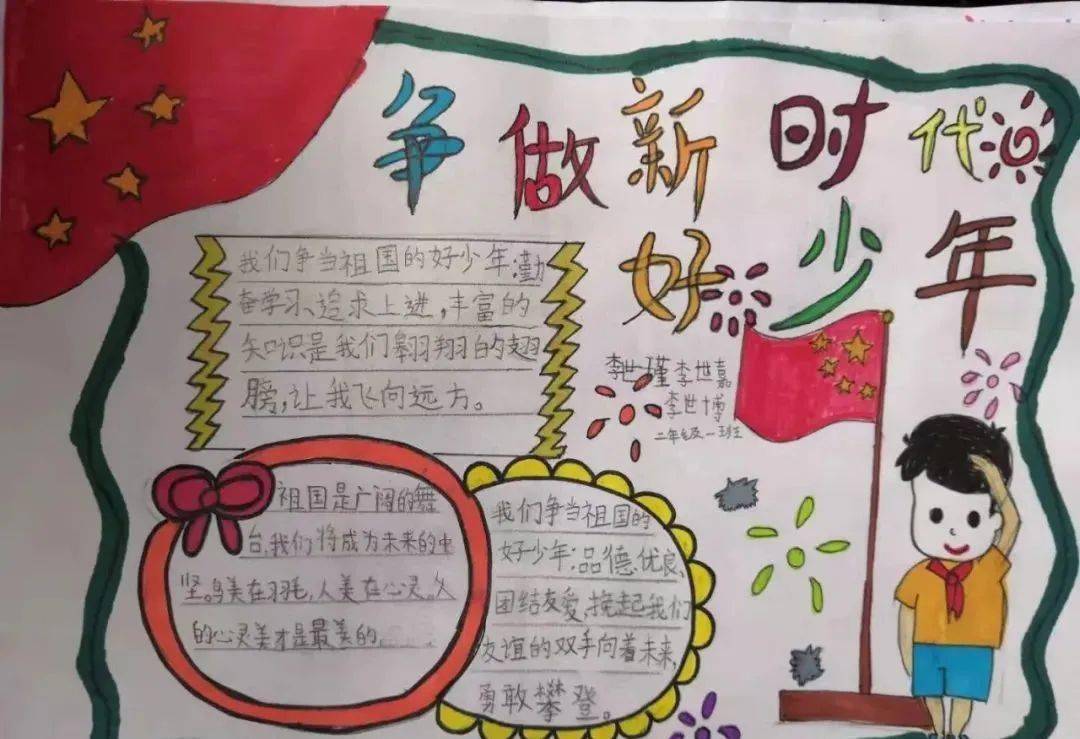 争做新时代
好少年
我们争当祖国的好少年:勤
奋学习、追求上进,丰富的
知识是我们翱翔的翅
膀,让我飞向远方。
李世瑾 李世嘉
李世博
二年级一班
祖国是广阔的舞
台,我们将成为未来的中
坚。鸟美在羽毛,人美在心灵。人
的心灵美才是最美的
我们争当祖国的
好少年:品德优良、
团结友爱,挽起我们
友谊的双手向着未来,
勇敢攀登。